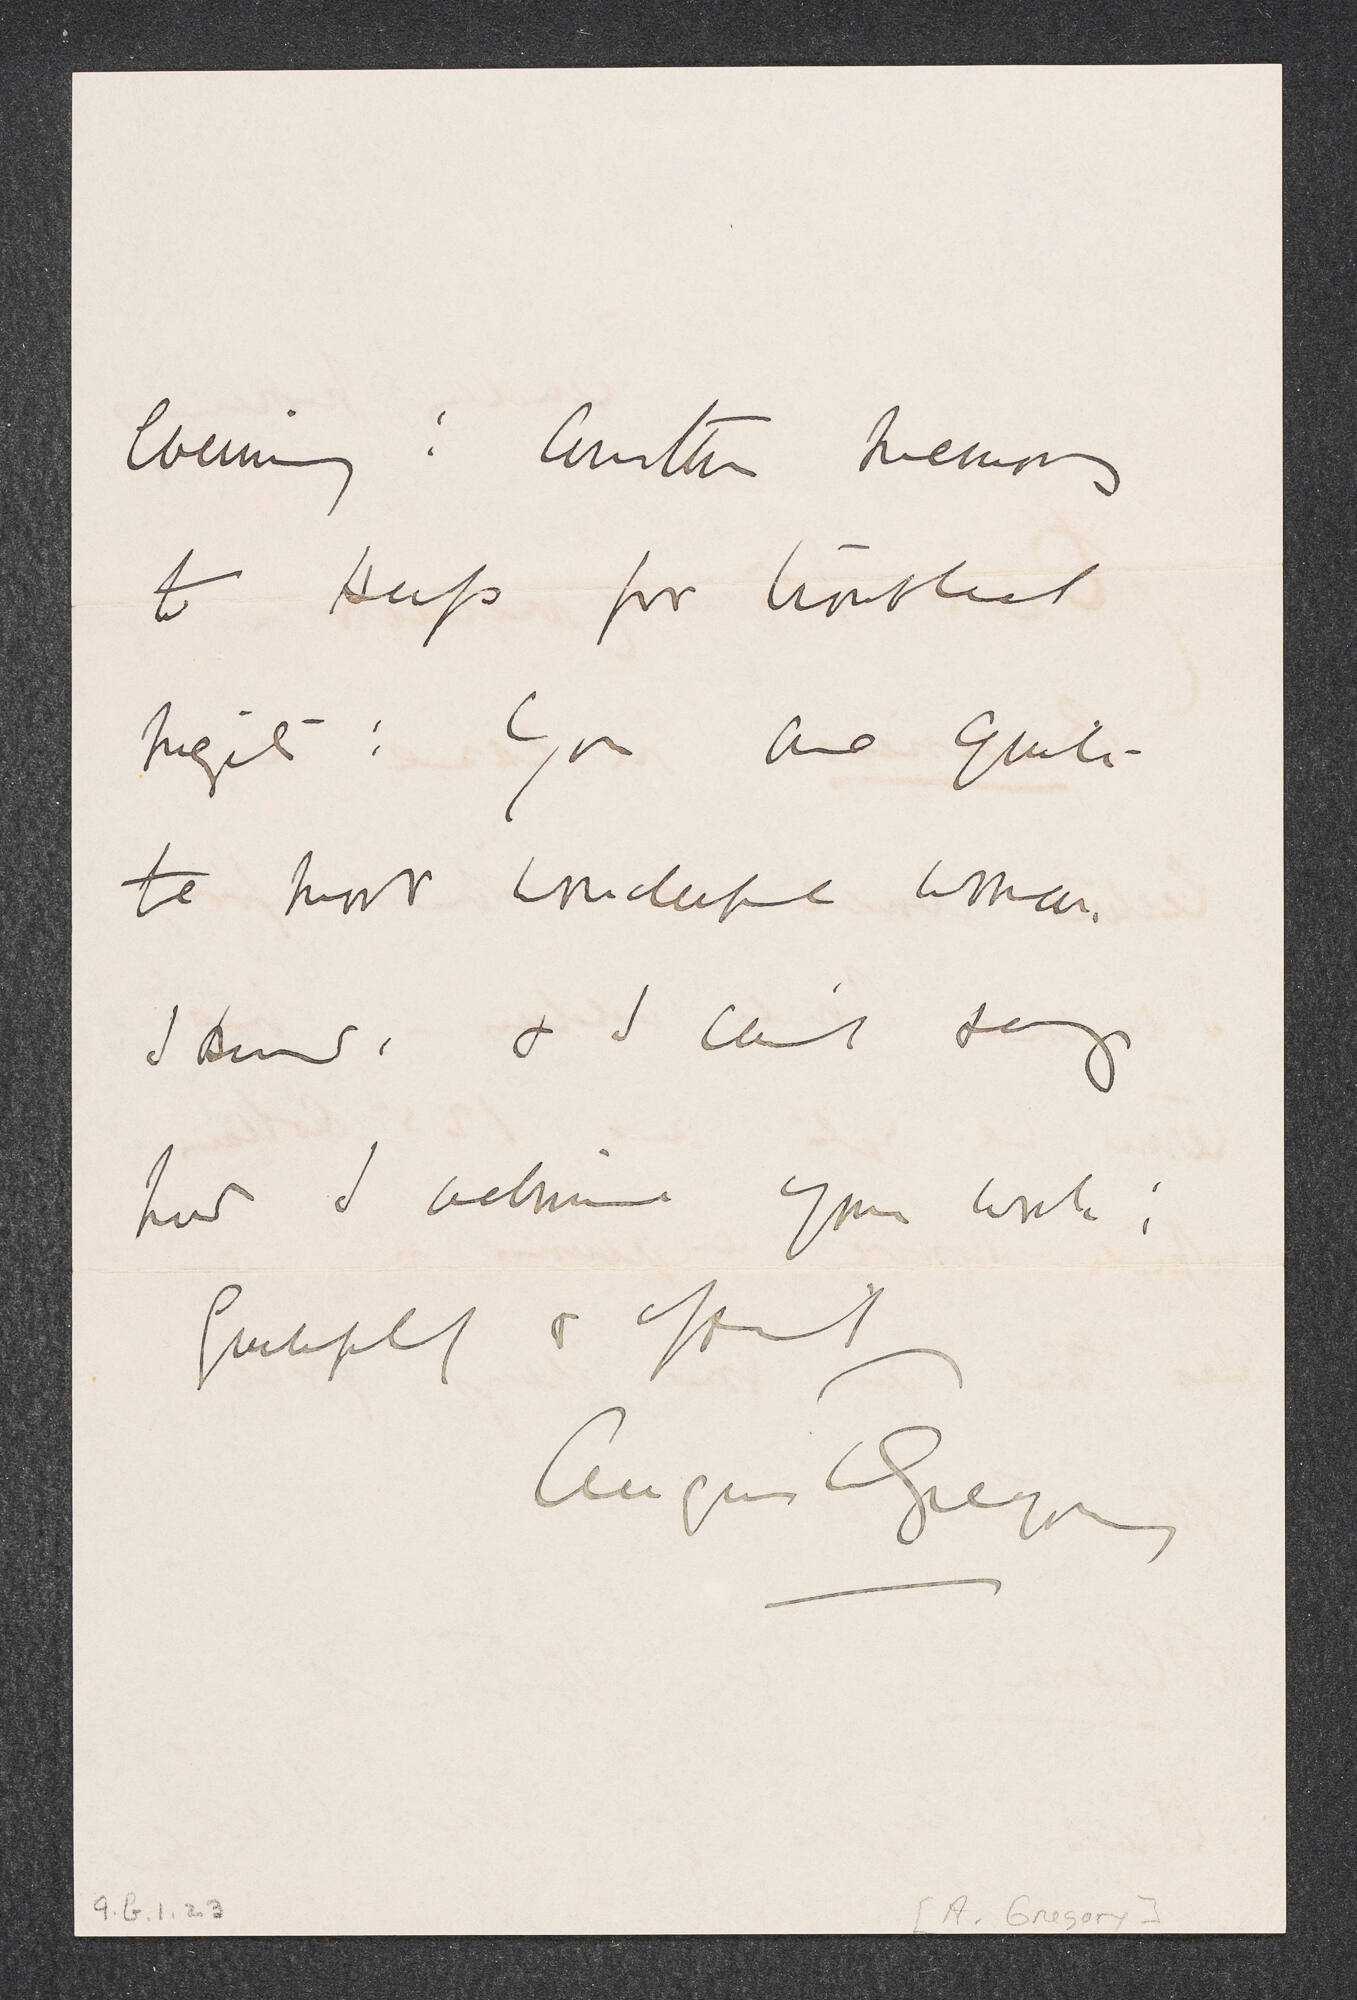 Evening : Another memory
to keep for troubled
nights : You are quite
the most wonderful woman
I know. & I can't say
how I admire your work :
Gratefully &
Angus Gregory
9.G.1.23
[A. Gregory]